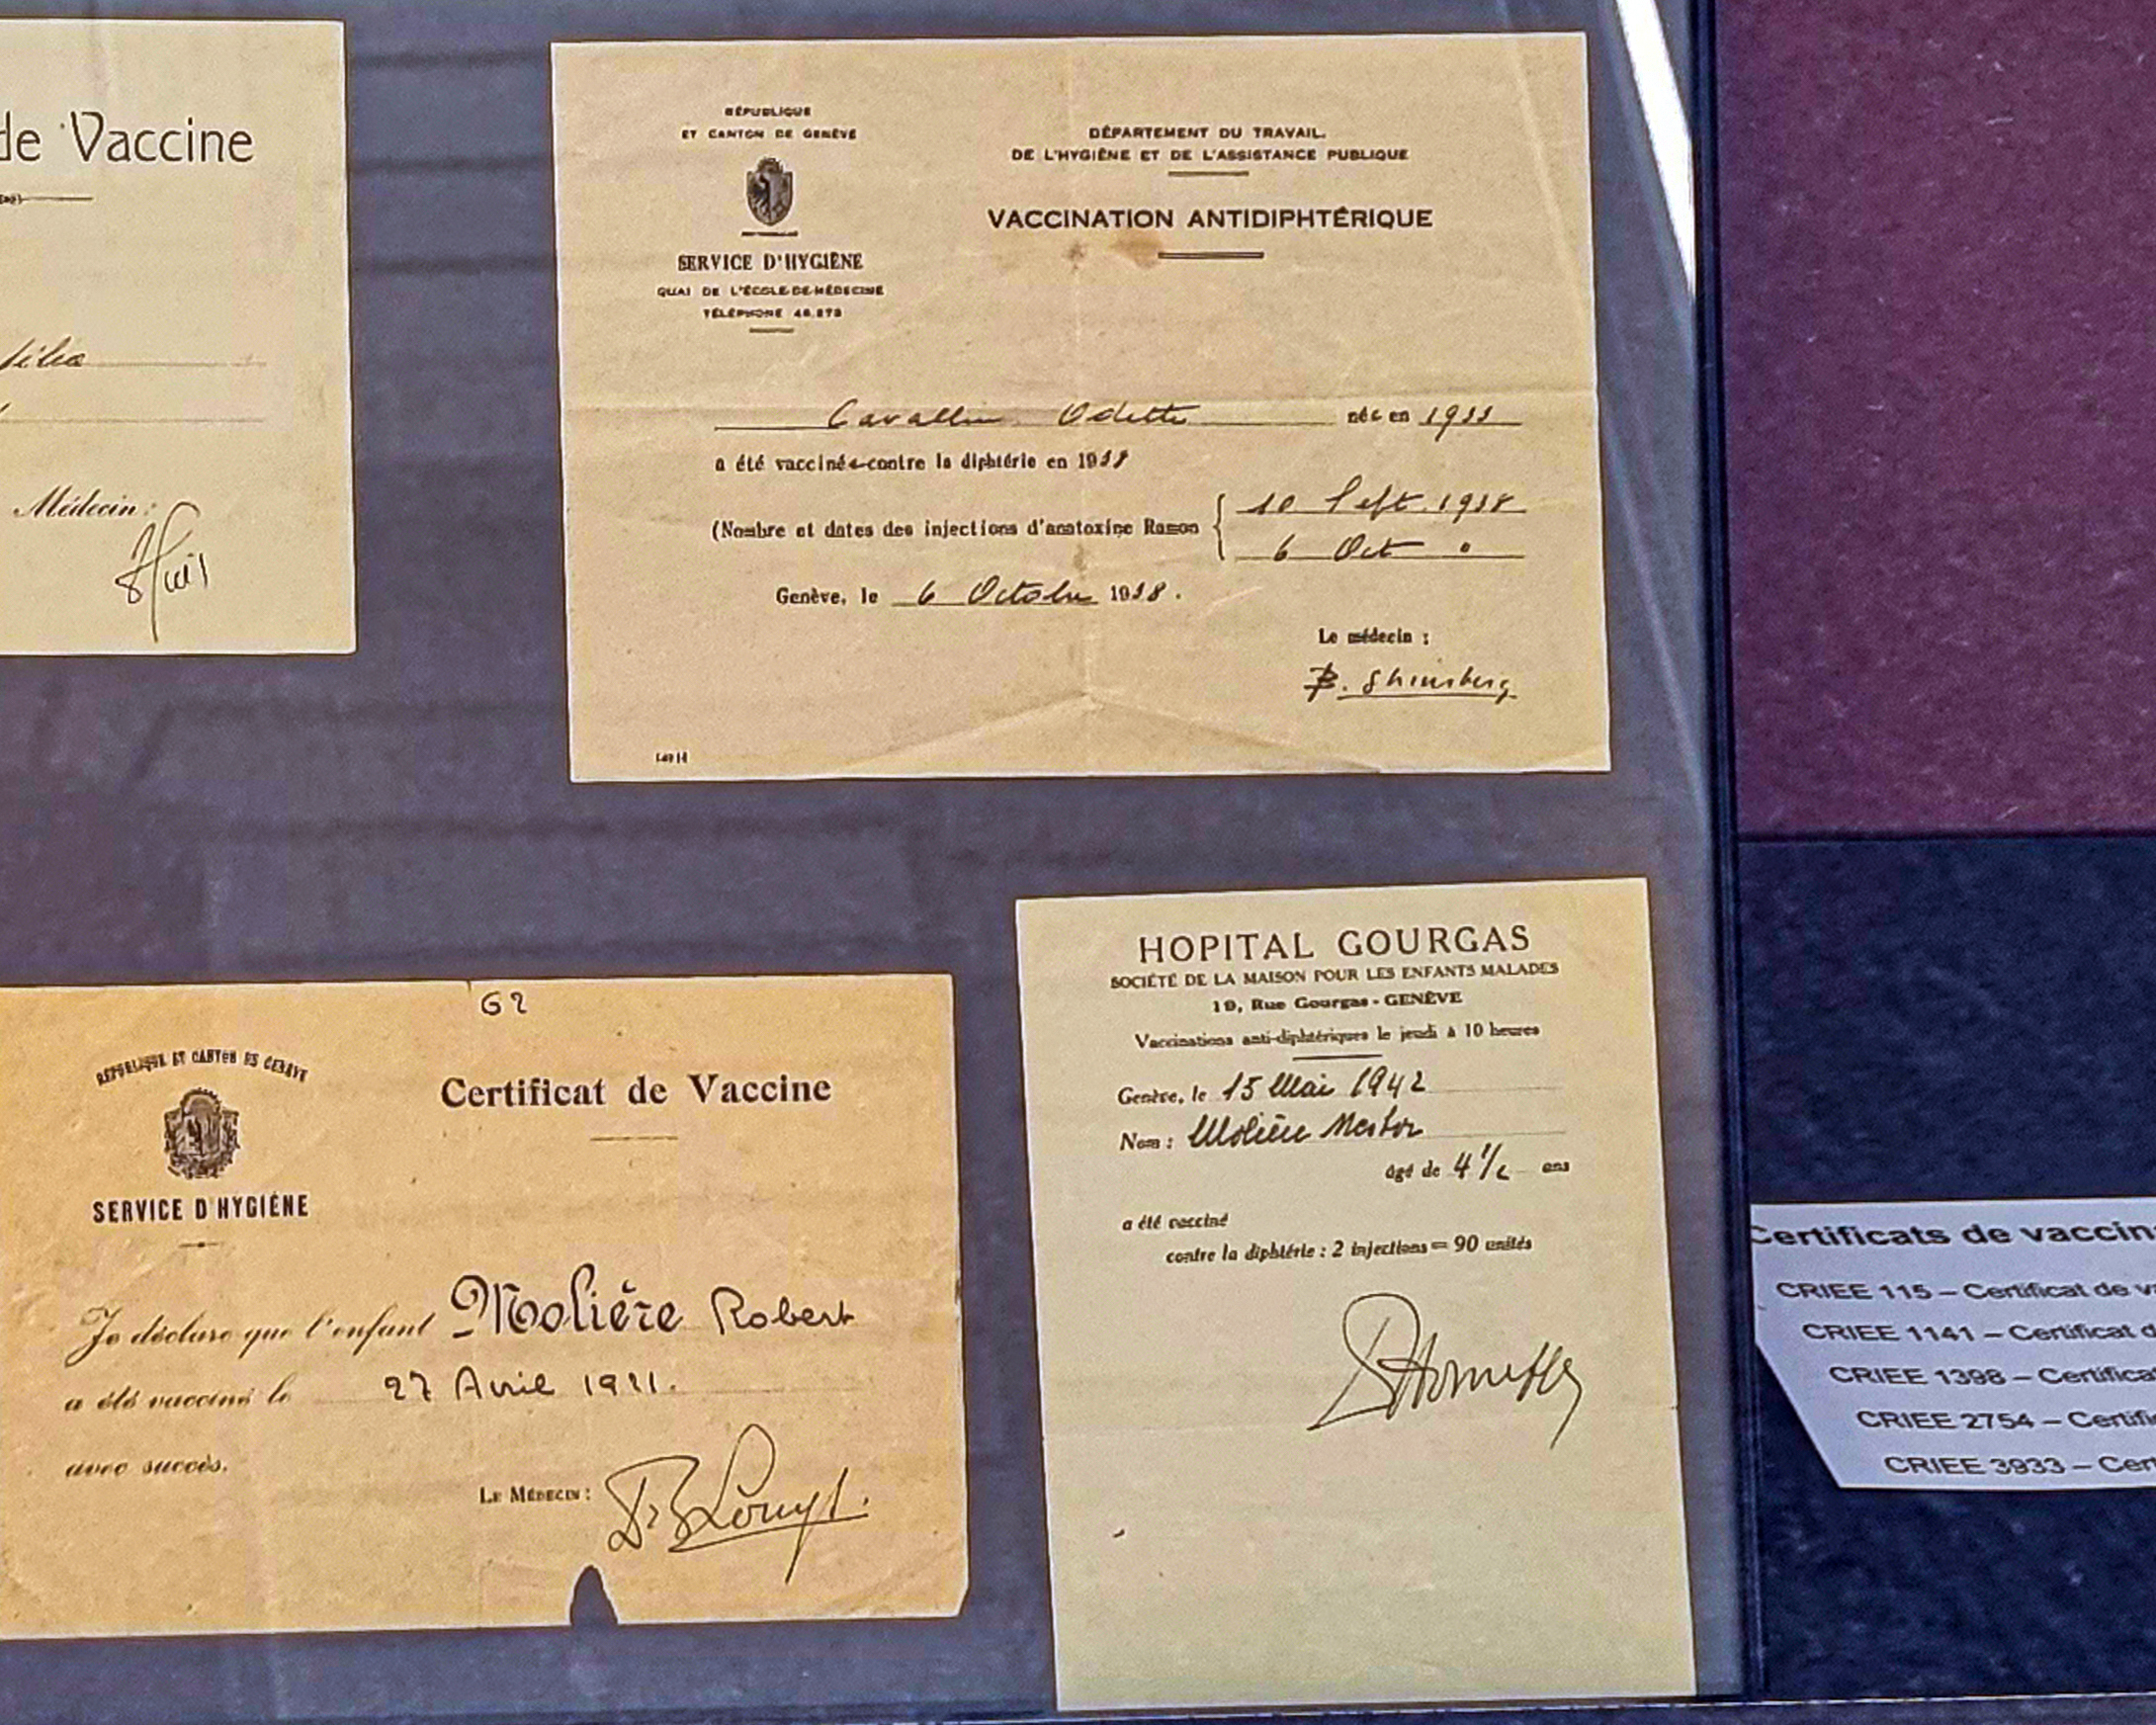 de Vaccine
Médecin:
RÉPUBLIQUE
ET CANTON DE GENÈVE
SERVICE D'HYGIÈNE
QUAI DE L'ÉCOLE-DE-MÉDECINE
TÉLÉPHONE
DÉPARTEMENT DU TRAVAIL,
DE L'HYGIÈNE ET DE L'ASSISTANCE PUBLIQUE
VACCINATION ANTIDIPHTÉRIQUE
Odette née en 1933
a été vaccinée contre la diphtérie en 1938
(Nombre et dates des injections d'anatoxine Ramon { 10 Sept. 1938
6 Oct "
Genève, le 6 Octobre 1938.
Le médecin :
G2
RÉPUBLIQUE ET CANTON DE GENÈVE
SERVICE D'HYGIÈNE
Certificat de Vaccine
Je déclare que l'enfant Molière Robert
a été vacciné le 27 Avril 1921.
avec succès.
LE MÉDECIN :
HOPITAL GOURGAS
SOCIÉTÉ DE LA MAISON POUR LES ENFANTS MALADES
19, Rue Gourgas - GENÈVE
Vaccinations anti-diphtériques le jeudi à 10 heures
Genève, le 15 Mai 1942
Nom : Molière Nestor
âgé de 4 1/2 ans
a été vacciné
contre la diphtérie : 2 injections = 90 unités
Certificats de vaccin
CRIEE 115 – Certificat de v
CRIEE 1141 – Certificat d
CRIEE 1398 – Certifica
CRIEE 2754 – Certifi
CRIEE 3933 – Cert